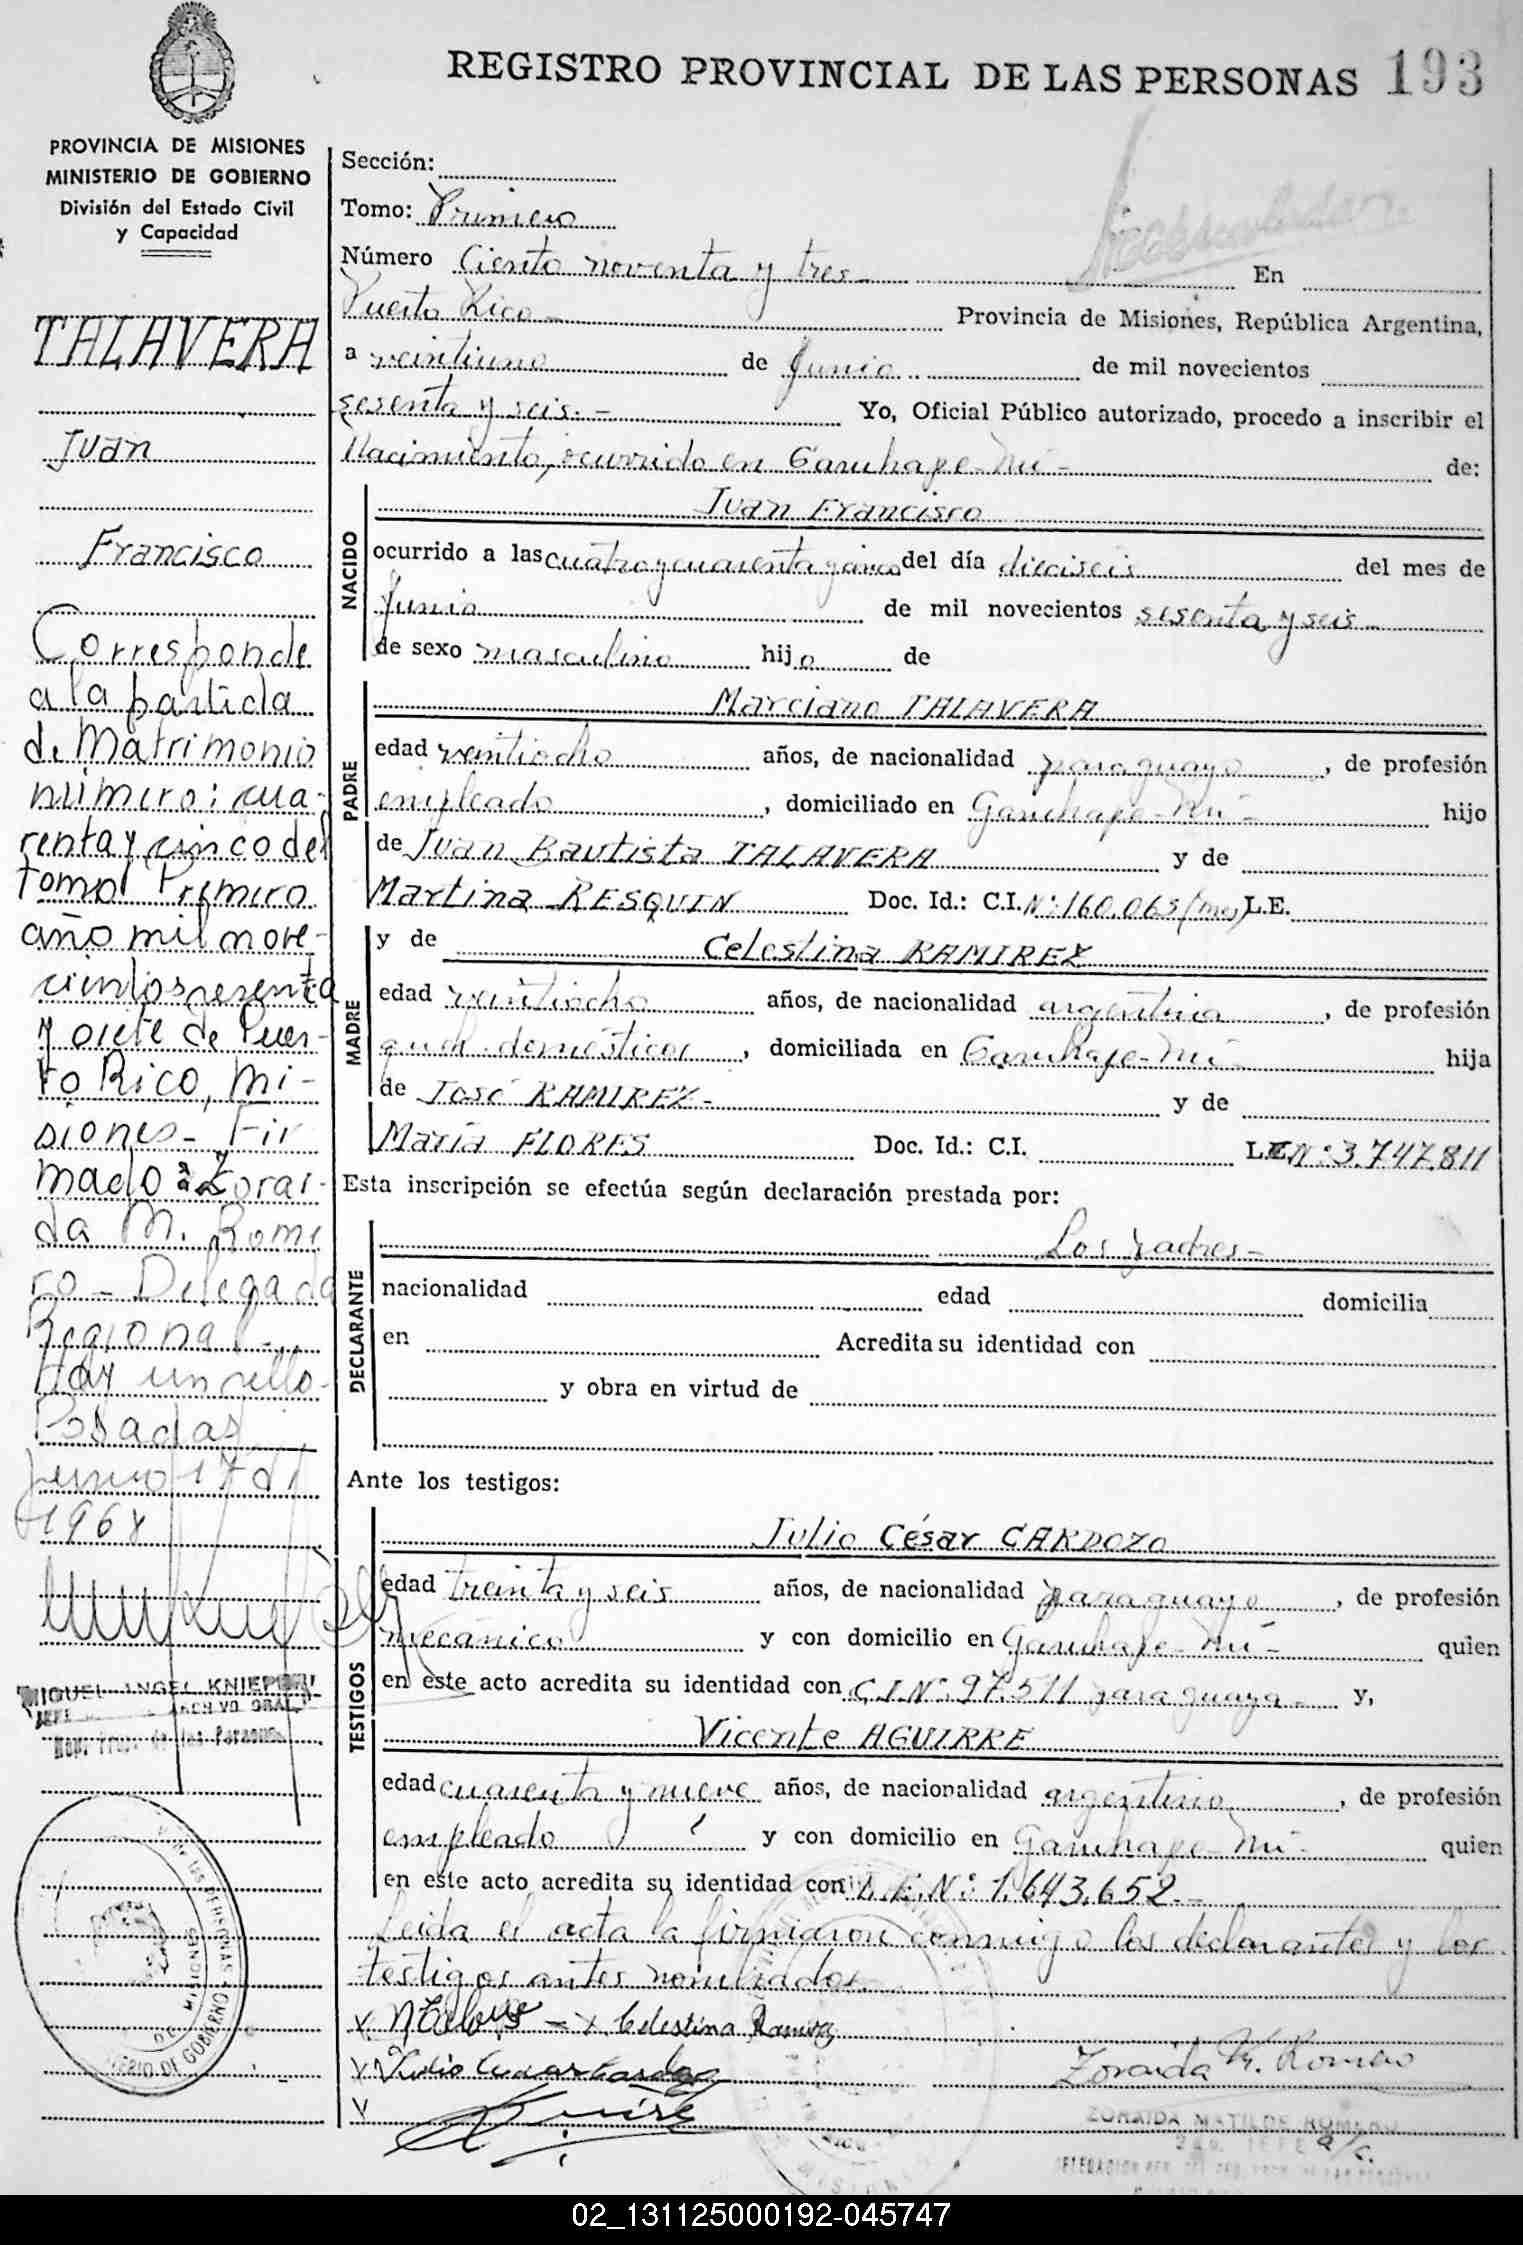 REGISTRO PROVINCIAL DE LAS PERSONAS 193
PROVINCIA DE MISIONES
MINISTERIO DE GOBIERNO
División del Estado Civil
y Capacidad
TALAVERA
Juan
Francisco
Corresponde
a la partida
de Matrimonio
número: cua-
renta y cinco del
tomo Primero
año mil nove-
cientos sesenta
y siete de Puer-
to Rico, Mi-
siones - Fir
mado: Zorai-
da M. Rome
ro - Delegada
Regional -
Hay un sello -
Posadas
Junio 17 de
1968
MIGUEL ANGEL
Sección:
Tomo: Primero
Número Ciento noventa y tres En
Puerto Rico Provincia de Misiones, República Argentina,
a veintiuno de Junio de mil novecientos
sesenta y seis.- Yo, Oficial Público autorizado, procedo a inscribir el
Nacimiento, ocurrido en Garuhape-Mí - de:
NACIDO
Juan Francisco
ocurrido a las cuatro y cuarenta y cinco del día dieciseis del mes de
Junio de mil novecientos sesenta y seis
de sexo masculino hijo de
PADRE
Marciano TALAVERA
edad veintiocho años, de nacionalidad paraguayo, de profesión
empleado, domiciliado en Garuhape-Mí - hijo
de Juan Bautista TALAVERA y de
Martina RESQUIN Doc. Id.: C.I. Nº: 160.065 (Mnes) L.E.
MADRE
y de Celestina RAMIREZ
edad veintiocho años, de nacionalidad argentina, de profesión
queh. domésticos, domiciliada en Garuhape-Mí - hija
de José RAMIREZ- y de
María FLORES Doc. Id.: C.I. L.E. Nº: 3.747.811
Esta inscripción se efectúa según declaración prestada por:
DECLARANTE
Los padres-
nacionalidad edad domicilia
en Acredita su identidad con
y obra en virtud de
Ante los testigos:
TESTIGOS
Julio César CARDOZO
edad treinta y seis años, de nacionalidad paraguayo, de profesión
mecánico y con domicilio en Garuhape-Mí - quien
en este acto acredita su identidad con C.I.Nº: 97.511 paraguaya - y,
Vicente AGUIRRE
edad cuarenta y nueve años, de nacionalidad argentino, de profesión
empleado y con domicilio en Garuhape-Mí - quien
en este acto acredita su identidad con L.E.Nº: 1.643.652.-
Leida el acta la firmaron conmigo los declarantes y los
testigos antes nombrados.
Celestina Ramirez
Julio Cesar Cardozo
Zoraida M. Romero
ZORAIDA MATILDE ROMERO
2do. JEFE a/c.
02_131125000192-045747